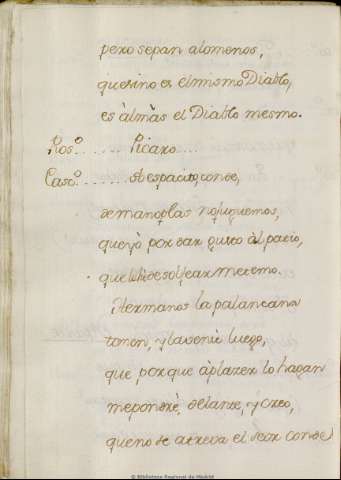 pero sepan alomenos,
quesino es elmismo Diablo,
es àlmàs el Diablo mesmo.
Ros.º ...... Picaro....
Casc.º ...... espacito, conde,
demanoplas nojuguemos,
queyò por dar gusto àl patio,
que hè desolfear metemo.
Hermanos la palancana
tomen, y lavenir luego,
que porque àplazer lo hagan
mepondrè, delante, y creo,
queno se atreva el señor conde
© Biblioteca Regional de Madrid